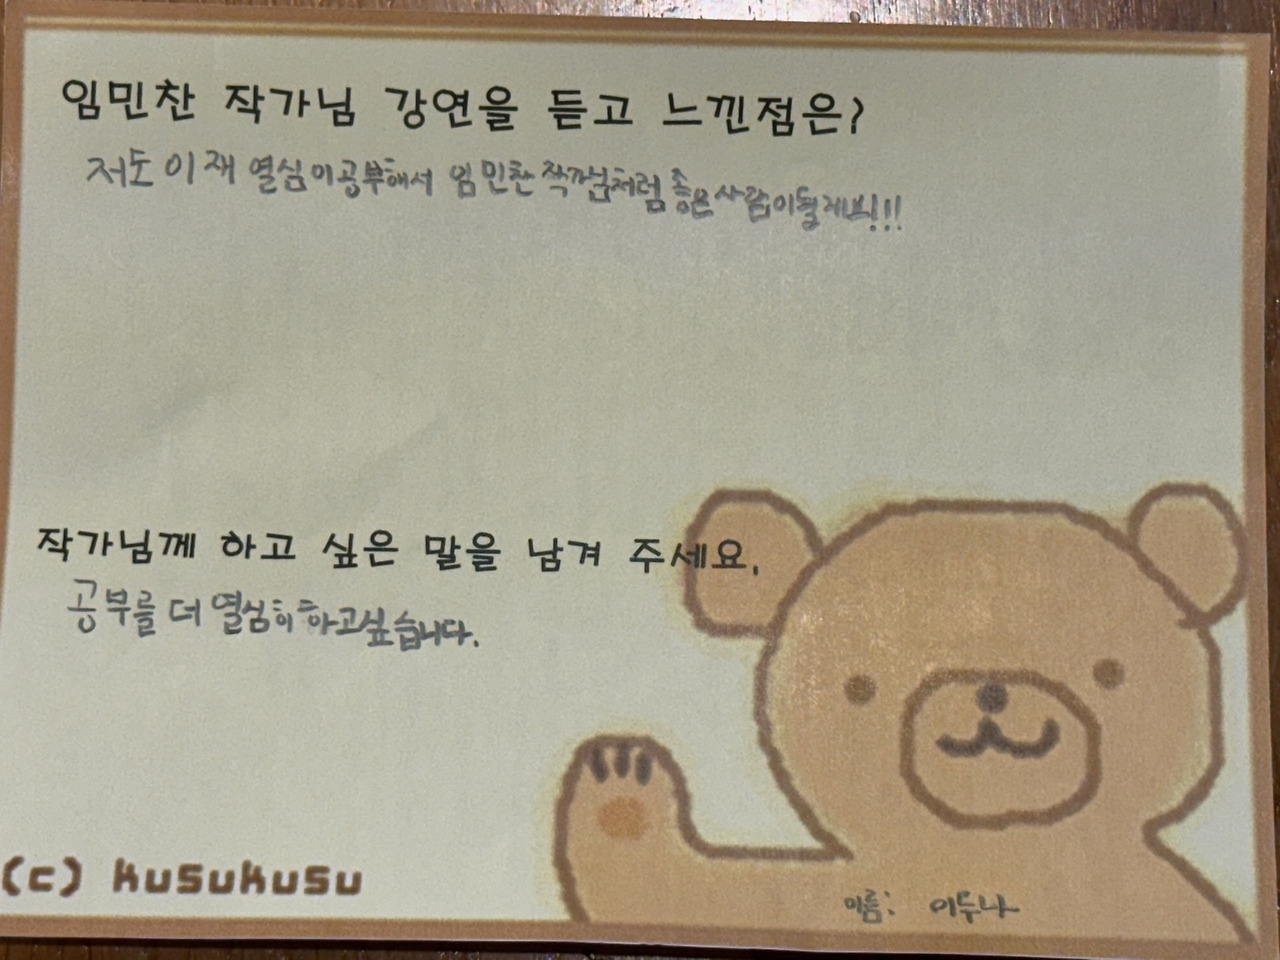 임민찬 작가님 강연을 듣고 느낀점은?
저도 이재 열심이공부해서 임민찬 작가님처럼 좋은사람이될게요!!!
작가님께 하고 싶은 말을 남겨 주세요.
공부를 더 열심히 하고싶습니다.
(c) kusukusu
이름: 이두나